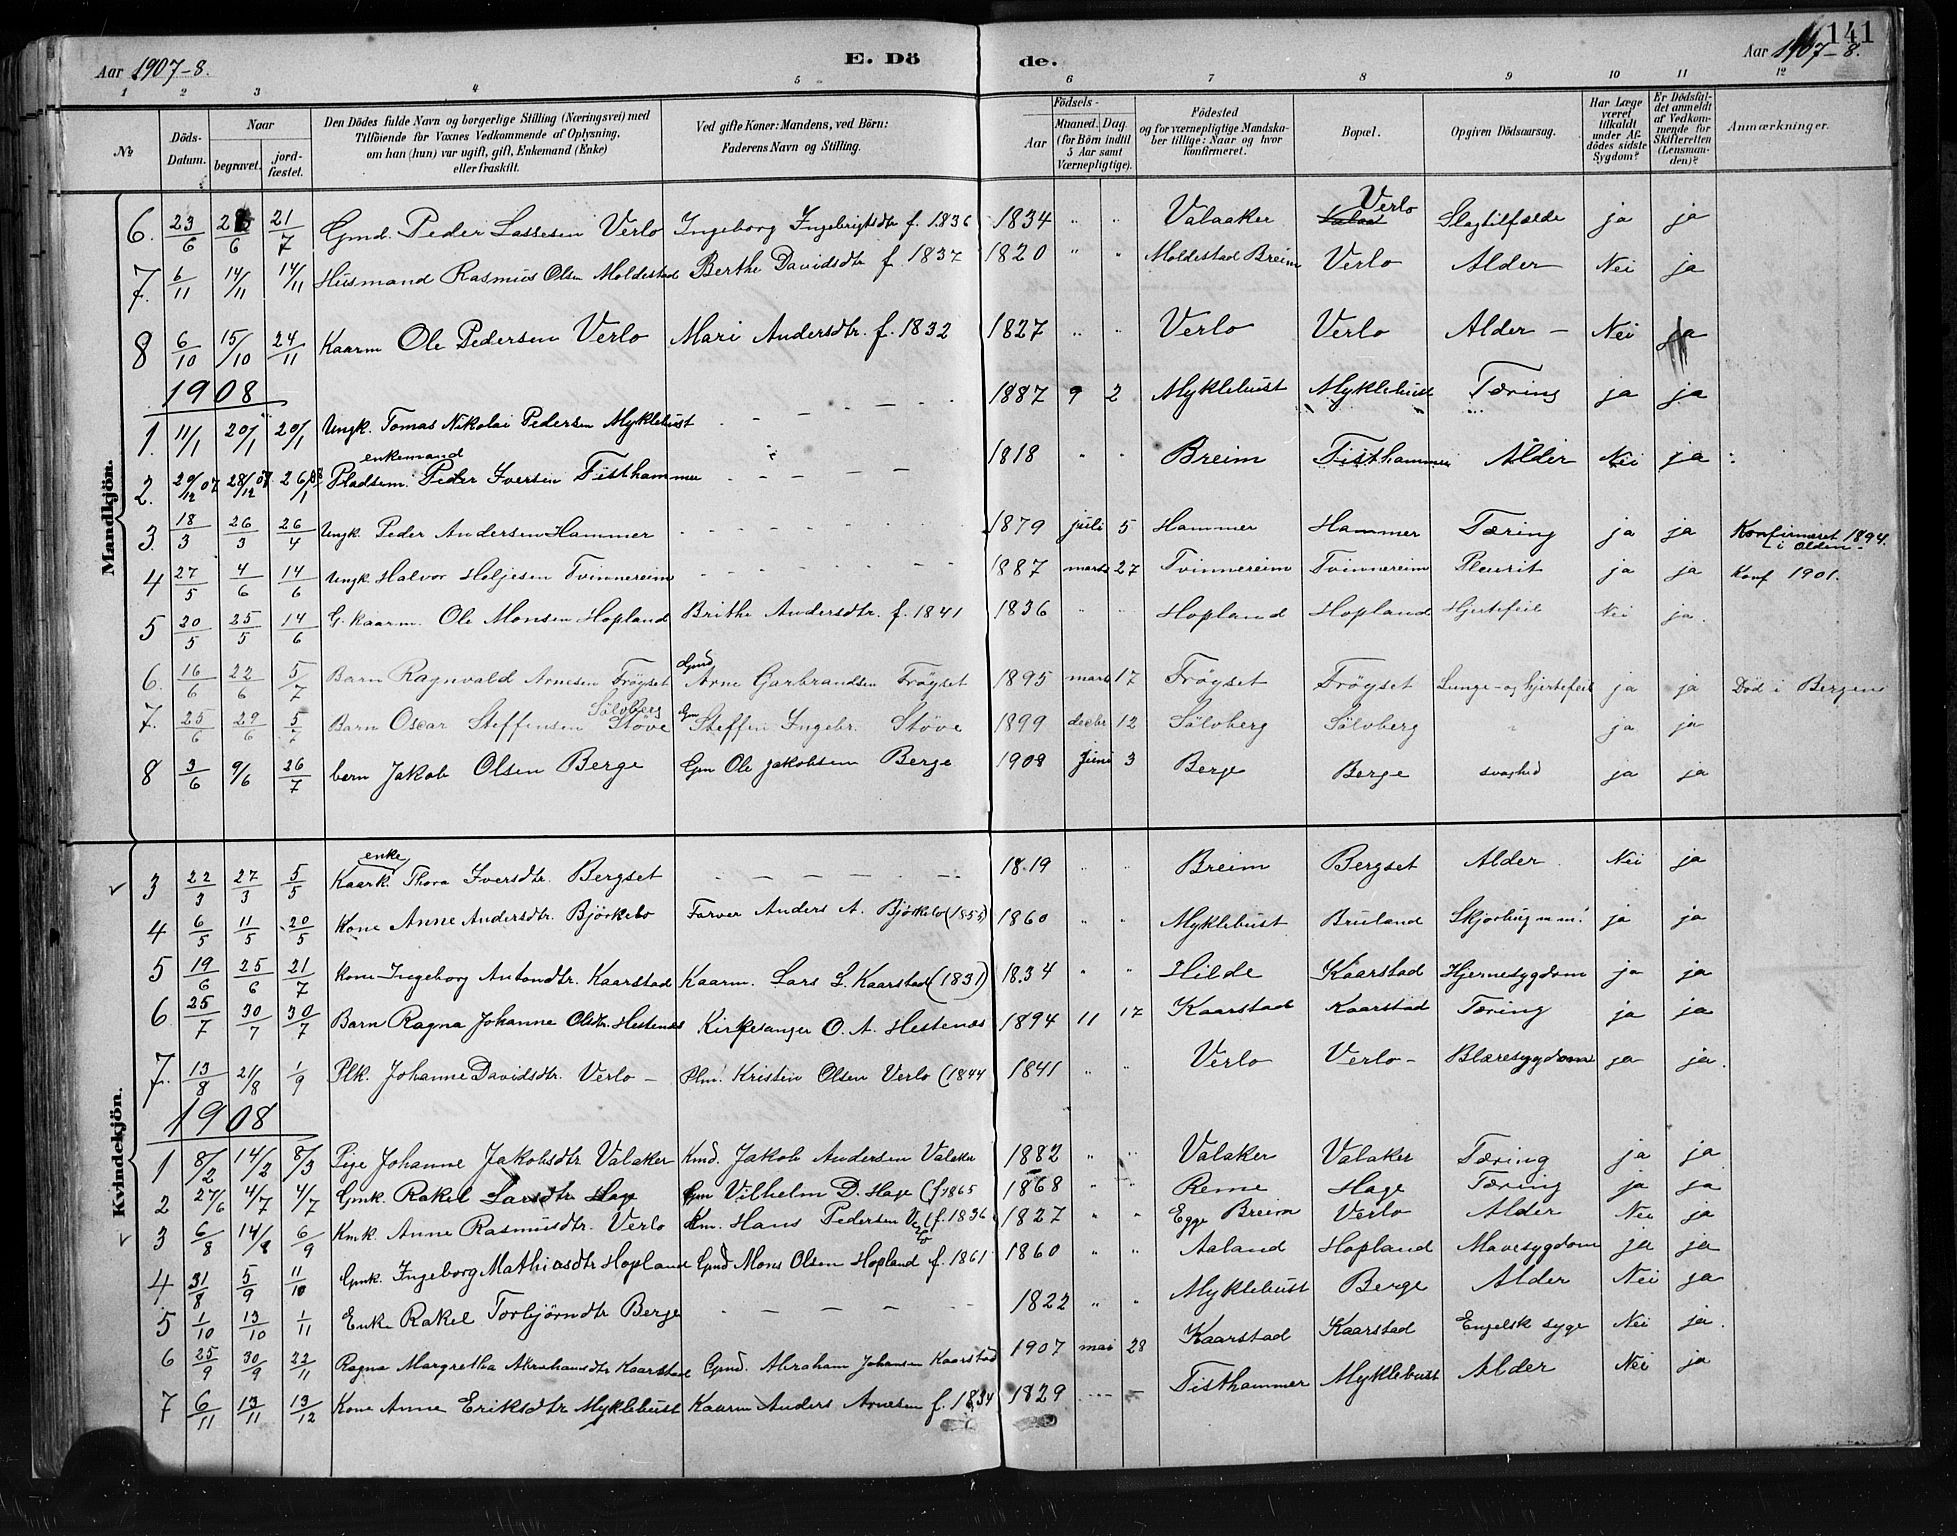 Aar 1907-8. E. Dö de. Aar 1907-8. 141
1 2 3 4 5 6 7 8 9 10 11 12
№ Döds-Datum. Naar begravet. jord-fæstet. Den Dödes fulde Navn og borgerlige Stilling (Næringsvei) med Tilföiende for Voxnes Vedkommende af Oplysning, om han (hun) var ugift, gift, Enkemand (Enke) eller fraskilt. Ved gifte Koner: Mandens, ved Börn: Faderens Navn og Stilling. Födsels- Aar Maaned. Dag. (for Börn indtil 5 Aar samt Værnepligtige). Födested og for værnepligtige Mandskaber tillige: Naar og hvor konfirmeret. Bopæl. Opgiven Dödsaarsag. Har Læge været tilkaldt under Afdödes sidste Sygdom? Er Dödsfaldet anmeldt af Vedkommende for Skifteretten (Lensmanden)? Anmærkninger.
Mandkjön.
6. 23/6 6 21/7 Gmd. Peder Lassesen Verlo Ingeborg Ingebrigtsdtr f. 1836 1834 " " Valaaker Verlo Slagtilfælde ja ja
7. 6/11 14/11 14/11 Husmand Rasmus Olsen Moldestad Berthe Davidsdtr f. 1837 1820 " " Moldestad Breim Verlo Alder Nei ja
8 6/10 15/10 24/11 Kaarm Ole Pedersen Verlo Mari Andersdtr. f. 1832 1827 " " Verlo Verlo Alder - Nei ja
1908
1. 11/1 20/1 20/1 Ungk. Tomas Nikolai Pedersen Myklebust - - - - 1887 9 2 Myklebust Myklebust Tæring ja ja
2. 20/12 07 28/12 07 26/1 08 Pladsem. enkemand Peder Iversen Tisthammer - - - 1818 " " Breim Tisthammer Alder Nei ja
3. 18/3 26/3 26/4 Ungk. Peder Andersen Hammer - - - - 1879 juli 5 Hammer Hammer Tæring ja ja Konfirmeret 1894. i Olden-
4 27/5 4/6 14/6 Ungk Halvor Heljesen Tvinnereim - - - - 1887 marts 27 Tvinnereim Tvinnereim Pleurit ja ja Konf 1901.
5 20/5 25/5 14/6 G. Kaarm. Ole Monsen Hopland Brithe Andersdtr. f. 1841 1836 " " Hopland Hopland Hjertefeil Nei ja.
6. 16/6 22/6 5/7 Barn Ragnvald Arnesen Fröyset Gmd Arne Garbrandsen Fröyset 1895 mars 17 Fröyset Fröyset Lunge- og hjertefeil ja ja Död i Bergen
7. 25/6 29/6 5/7 Barn Oscar Steffensen Sölvberg Stöve Gm Steffen Ingebr. Stöve 1899 decbr 12 Sölvberg Sölvberg " ja ja
8 3/6 9/6 26/7 barn Jakob Olsen Berge Gm Ole Jakobsen Berge 1908 Juni 3 Berge Berge svaghed ja ja
Kvindekjön.
3 22/3 27/3 5/5 Kaark. enke Thora Iversdtr. Bergset - - - - 1819 " " Breim Bergset Alder Nei ja
4 6/5 11/5 20/5 Kone Anne Andersdtr. Björkelo Farver Anders A. Björkelo (1855) 1860 " " Myklebust Bruland ja ja
5 19/6 25/6 21/7 Kone Ingeborg Antondtr. Kaarstad Kaarm. Lars L. Kaarstad (1831) 1834 " " Hilde Kaarstad Hjernesygdom ja ja
6 25/7 30/7 30/7 Barn Ragna Johanne Olsdtr. Hestenes Kirkesanger O. A. Hestenes 1894 11 17 Kaarstad Kaarstad Tæring ja ja
7. 13/8 21/8 1/9 Plk. Johanne Davidsdtr. Verlo - Plm. Kristen Olsen Verlo (1844 1841 " " Verlo Verlo - Blæresygdom ja ja.
1908
1 8/2 14/2 8/3 Pige Johanne Jakobsdtr Valaker Kmd. Jakob Andersen Valaker 1882 " " Valaker Valaker Tæring ja ja
2 27/6 4/7 4/7 Gmk. Rakel Larsdtr Hage Gm Vilhelm D. Hage (f 1865 1868 " " Reme Hage Tæring ja ja
3 6/8 14/8 6/9 Kmk. Anne Rasmusdtr. Verlo Km. Hans Pedersen Verlo (f. 1836 1827 " " Egge Breim Verlo Alder Nei ja
4 31/8 5/9 11/10 Gmk. Ingeborg Mathiasdtr Hopland Gmd Mons Olsen Hopland f. 1861 1860 " " Aaland Hopland Mavesygdom ja ja
5 1/10 13/10 1/11 Enke Rakel Torbjörndtr Berge - - - - 1822 " " Myklebust Berge Alder Nei ja
6 25/9 30/9 22/11 Ragna Margretha Abrahamsdtr Kaarstad Gmd. Abraham Johansen Kaarstad 1907 mai 28 Kaarstad Kaarstad Engelsk syge Nei ja.
7 6/11 13/11 13/12 Kone Anne Eriksdtr Myklebust Kaarm Anders Arnesen f. 1834 1829 - - Tisthammer Myklebust Alder Nei ja